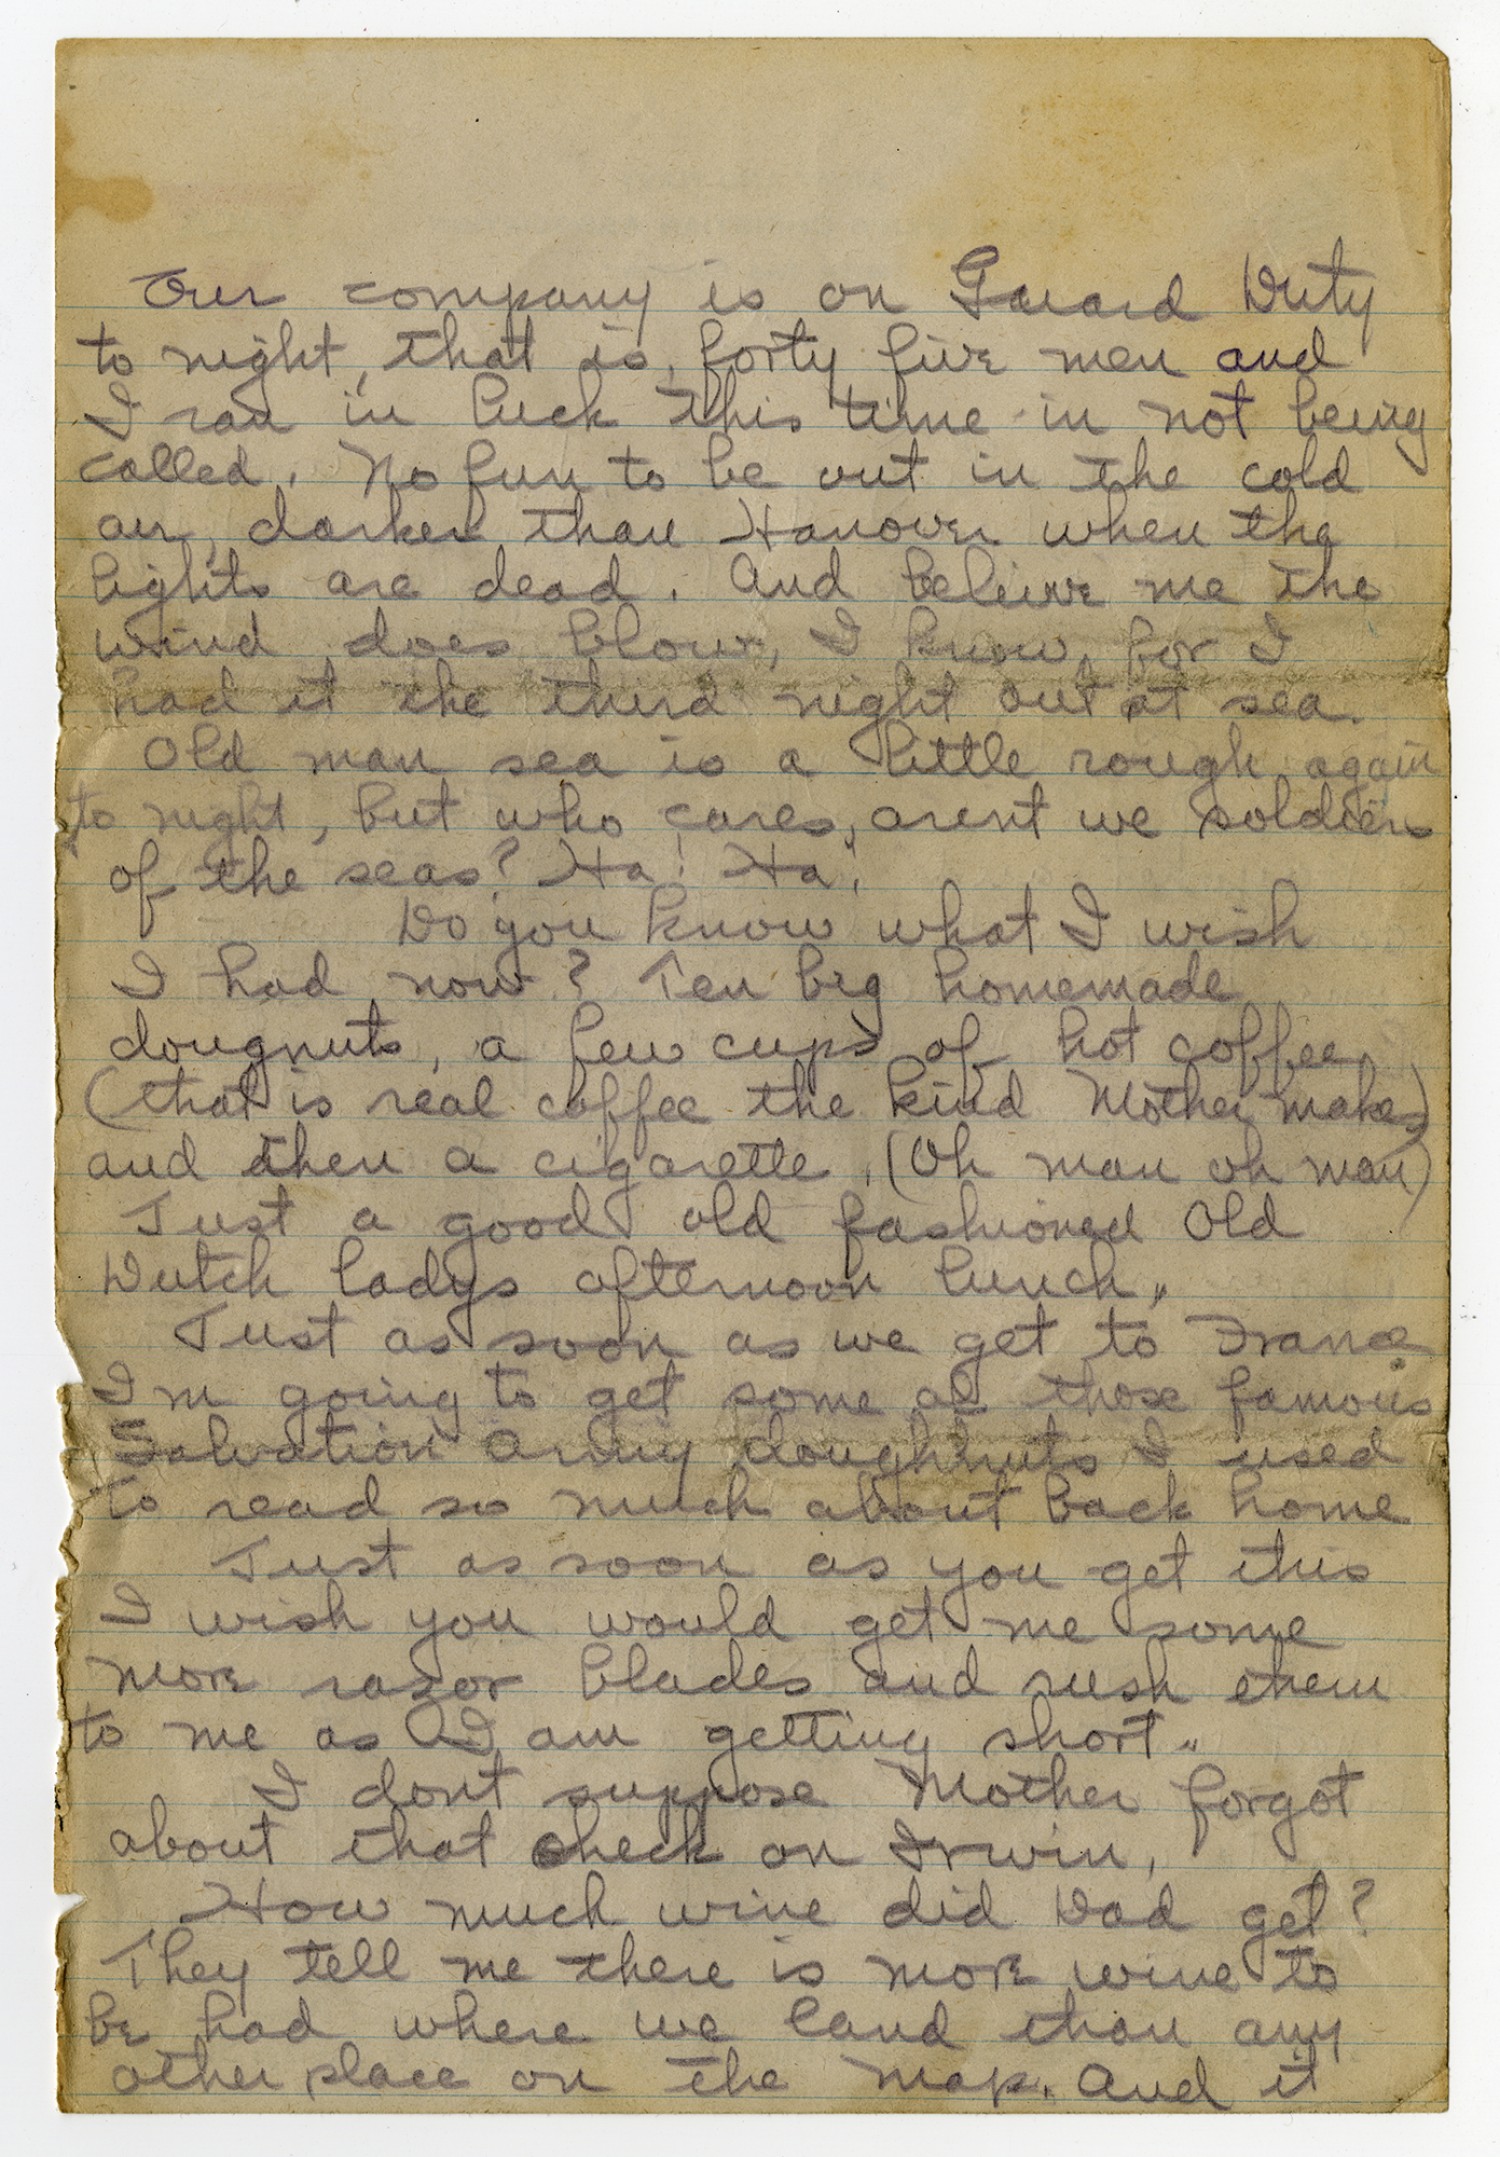 Our company is on Guard Duty
to night, that is, forty five men and
I ran in luck this time in not being
called. No fun to be out in the cold
air, darker than Hanover when the
lights are dead. And believe me the
wind does blow, I know, for I
had it the third night out at sea.
Old man sea is a little rough again
to night, but who cares, arent we soldiers
of the seas? Ha! Ha!
Do you know what I wish
I had now? Ten big homemade
dougnuts, a few cups of hot coffee,
(that is real coffee the kind Mother makes)
and then a cigarette. (Oh man oh man)
Just a good old fashioned Old
Dutch ladys afternoon lunch.
Just as soon as we get to France
I'm going to get some of those famous
Salvation Army doughnuts I used
to read so much about back home
Just as soon as you get this
I wish you would get me some
more razor blades and rush them
to me as I am getting short.
I dont suppose Mother forgot
about that check on Irwin.
How much wine did Dad get?
They tell me there is more wine to
be had where we land than any
other place on the map. And it